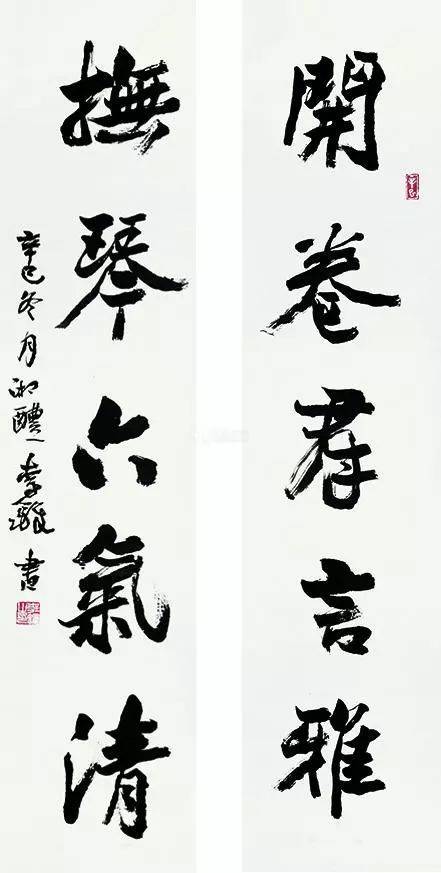 開卷群言雅
撫琴六氣清
辛巳冬月湘醴李鐸書